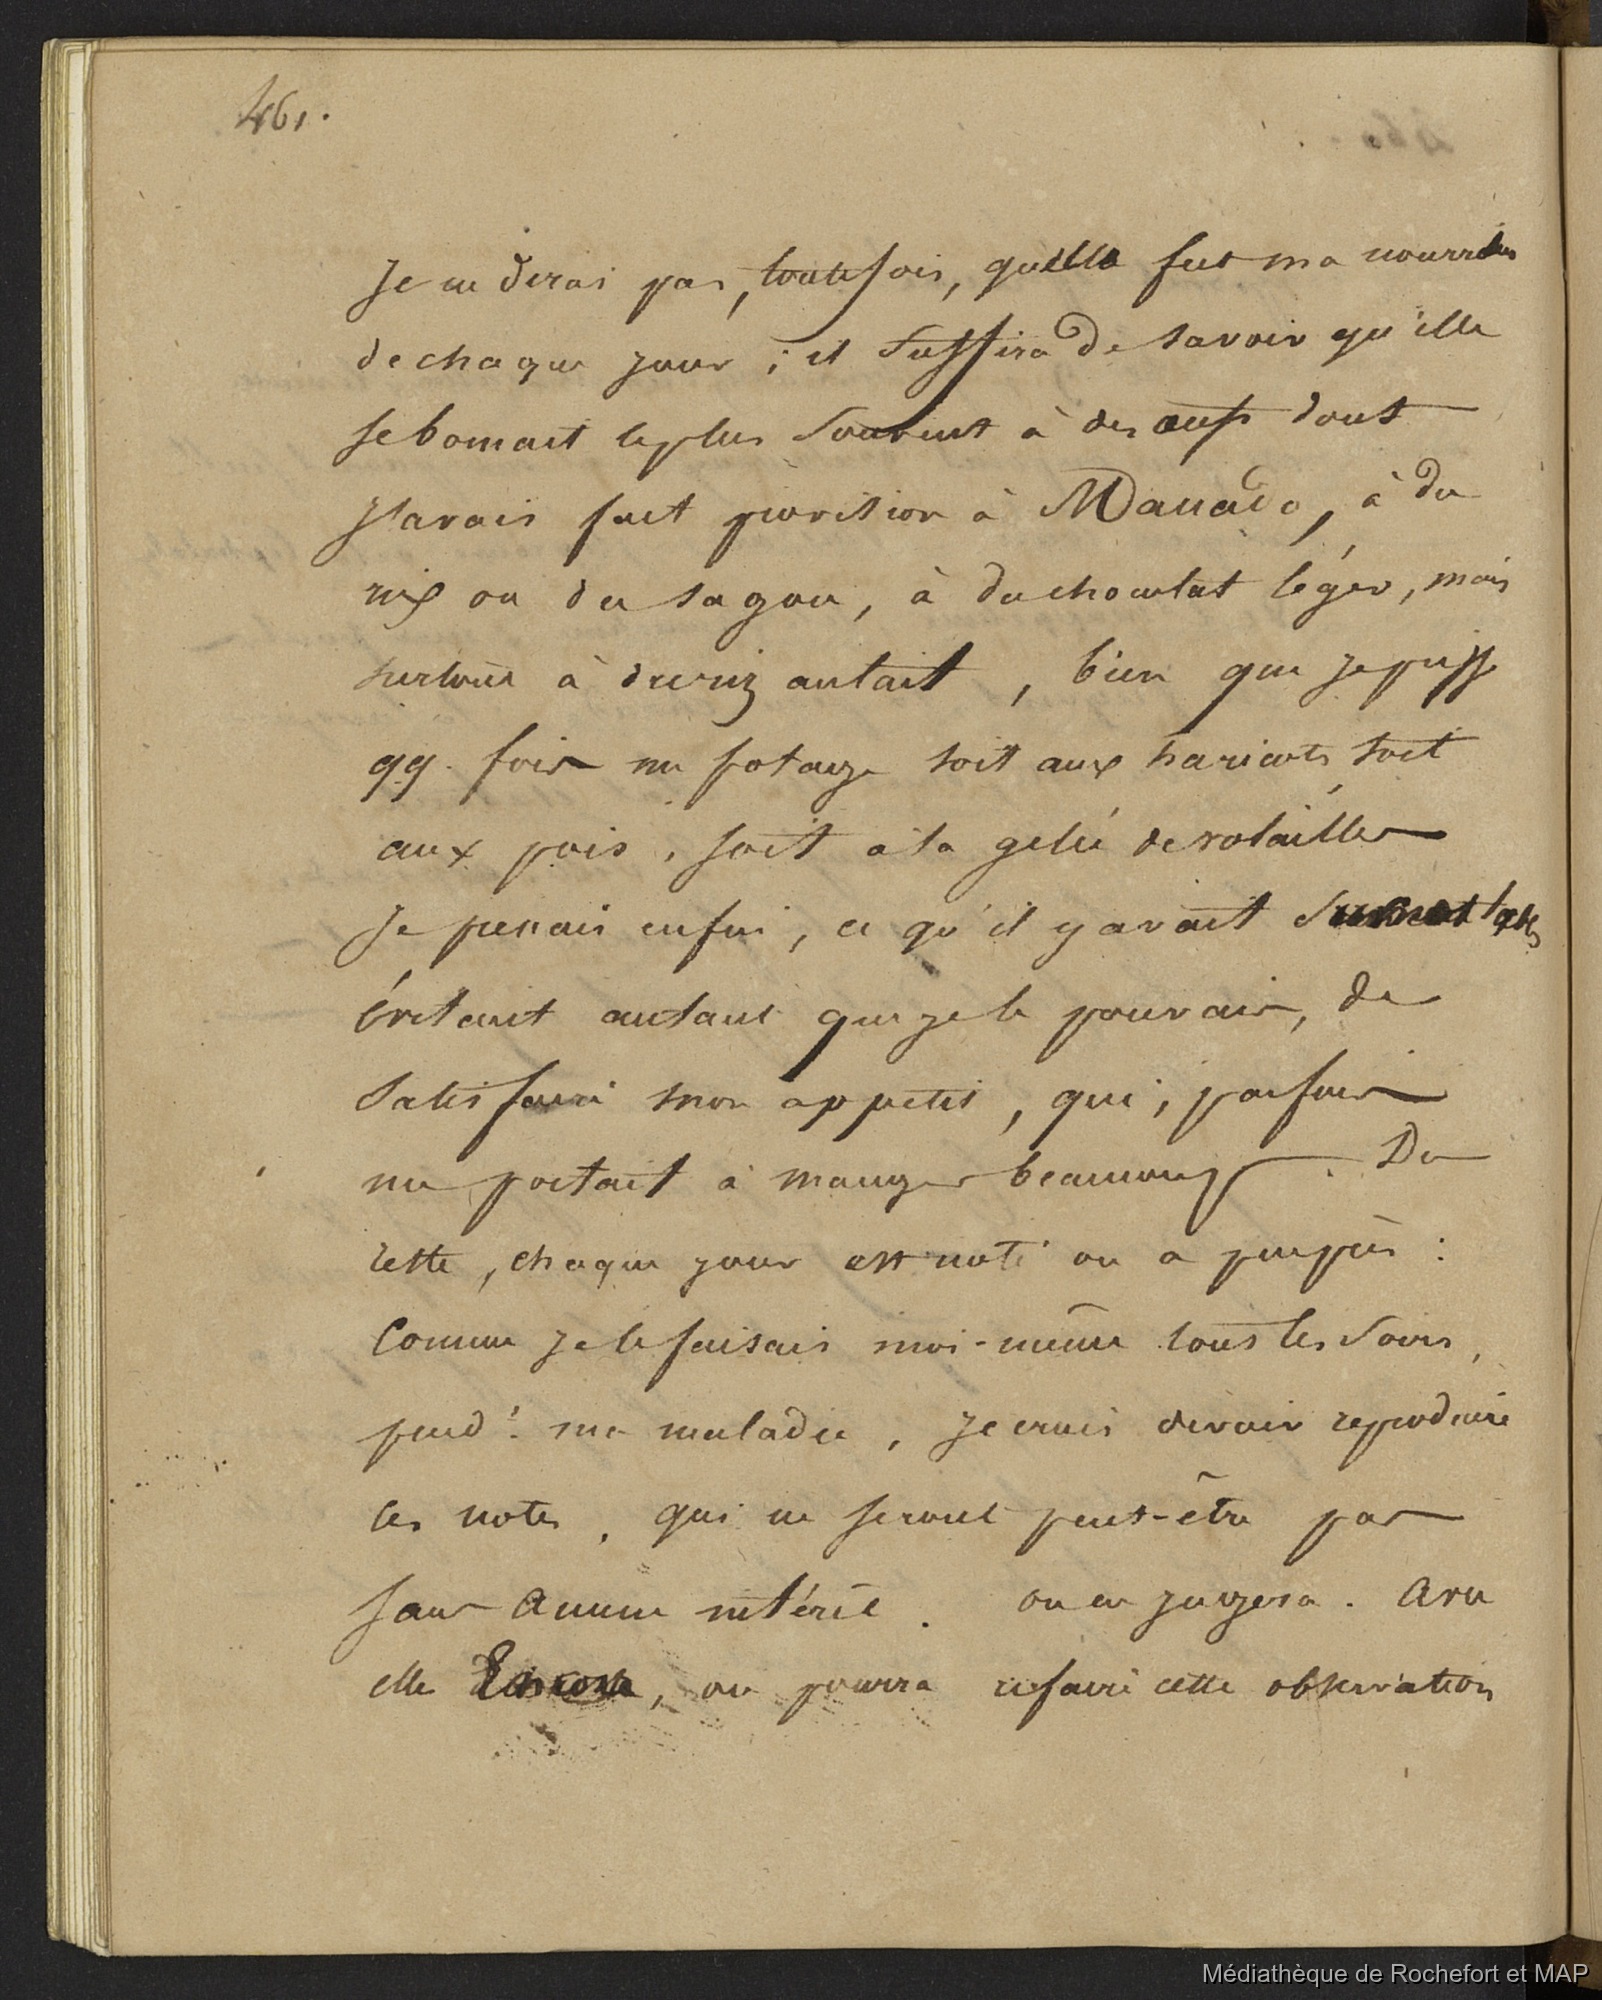 461.
Je ne dirai pas, toutefois, quelle fut ma nourriture
de chaque jour ; il suffira de savoir qu'elle
se bornait le plus souvent à des œufs dont
j'avais fait provision à Manado, à du
riz ou du sagou, à du chocolat léger, mais
surtout à du riz au lait, bien que je prisse
qq. fois un potage soit aux haricots soit
aux pois, soit à la gelée de volailles
Je prenais enfin, ce qu'il y avait
évitant autant que je le pouvais, de
satisfaire mon appetit, qui, parfois
me portait à manger beaucoup. Du
reste, chaque jour est noté ou a peu près :
Comme je le faisais moi-même tous les soirs,
pend.t ma maladie, je crois devoir reproduire
ces notes, qui ne seront peut-être pas
sans aucun intérêt. on en jugera. Avec
elle, on pourra refaire cette observation
Médiathèque de Rochefort et MAP